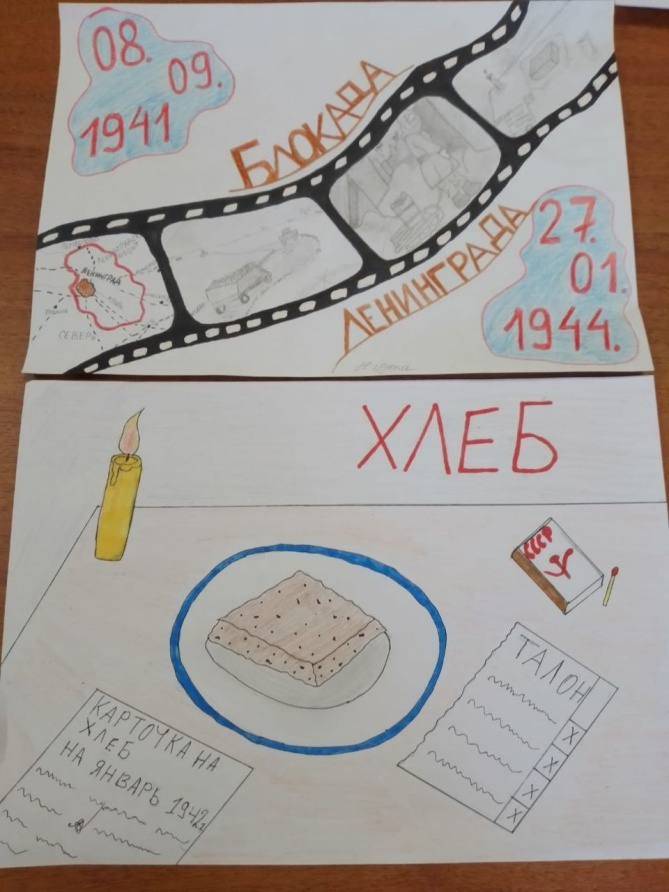 08.
09.
1941
БЛОКАДА
ЛЕНИНГРАДА
27.
01.
1944.
ЛЕНИНГРАД
СЕВЕР
ХЛЕБ
СССР
ТАЛОН
X
X
X
X
КАРТОЧКА НА
ХЛЕБ
НА ЯНВАРЬ 1942г